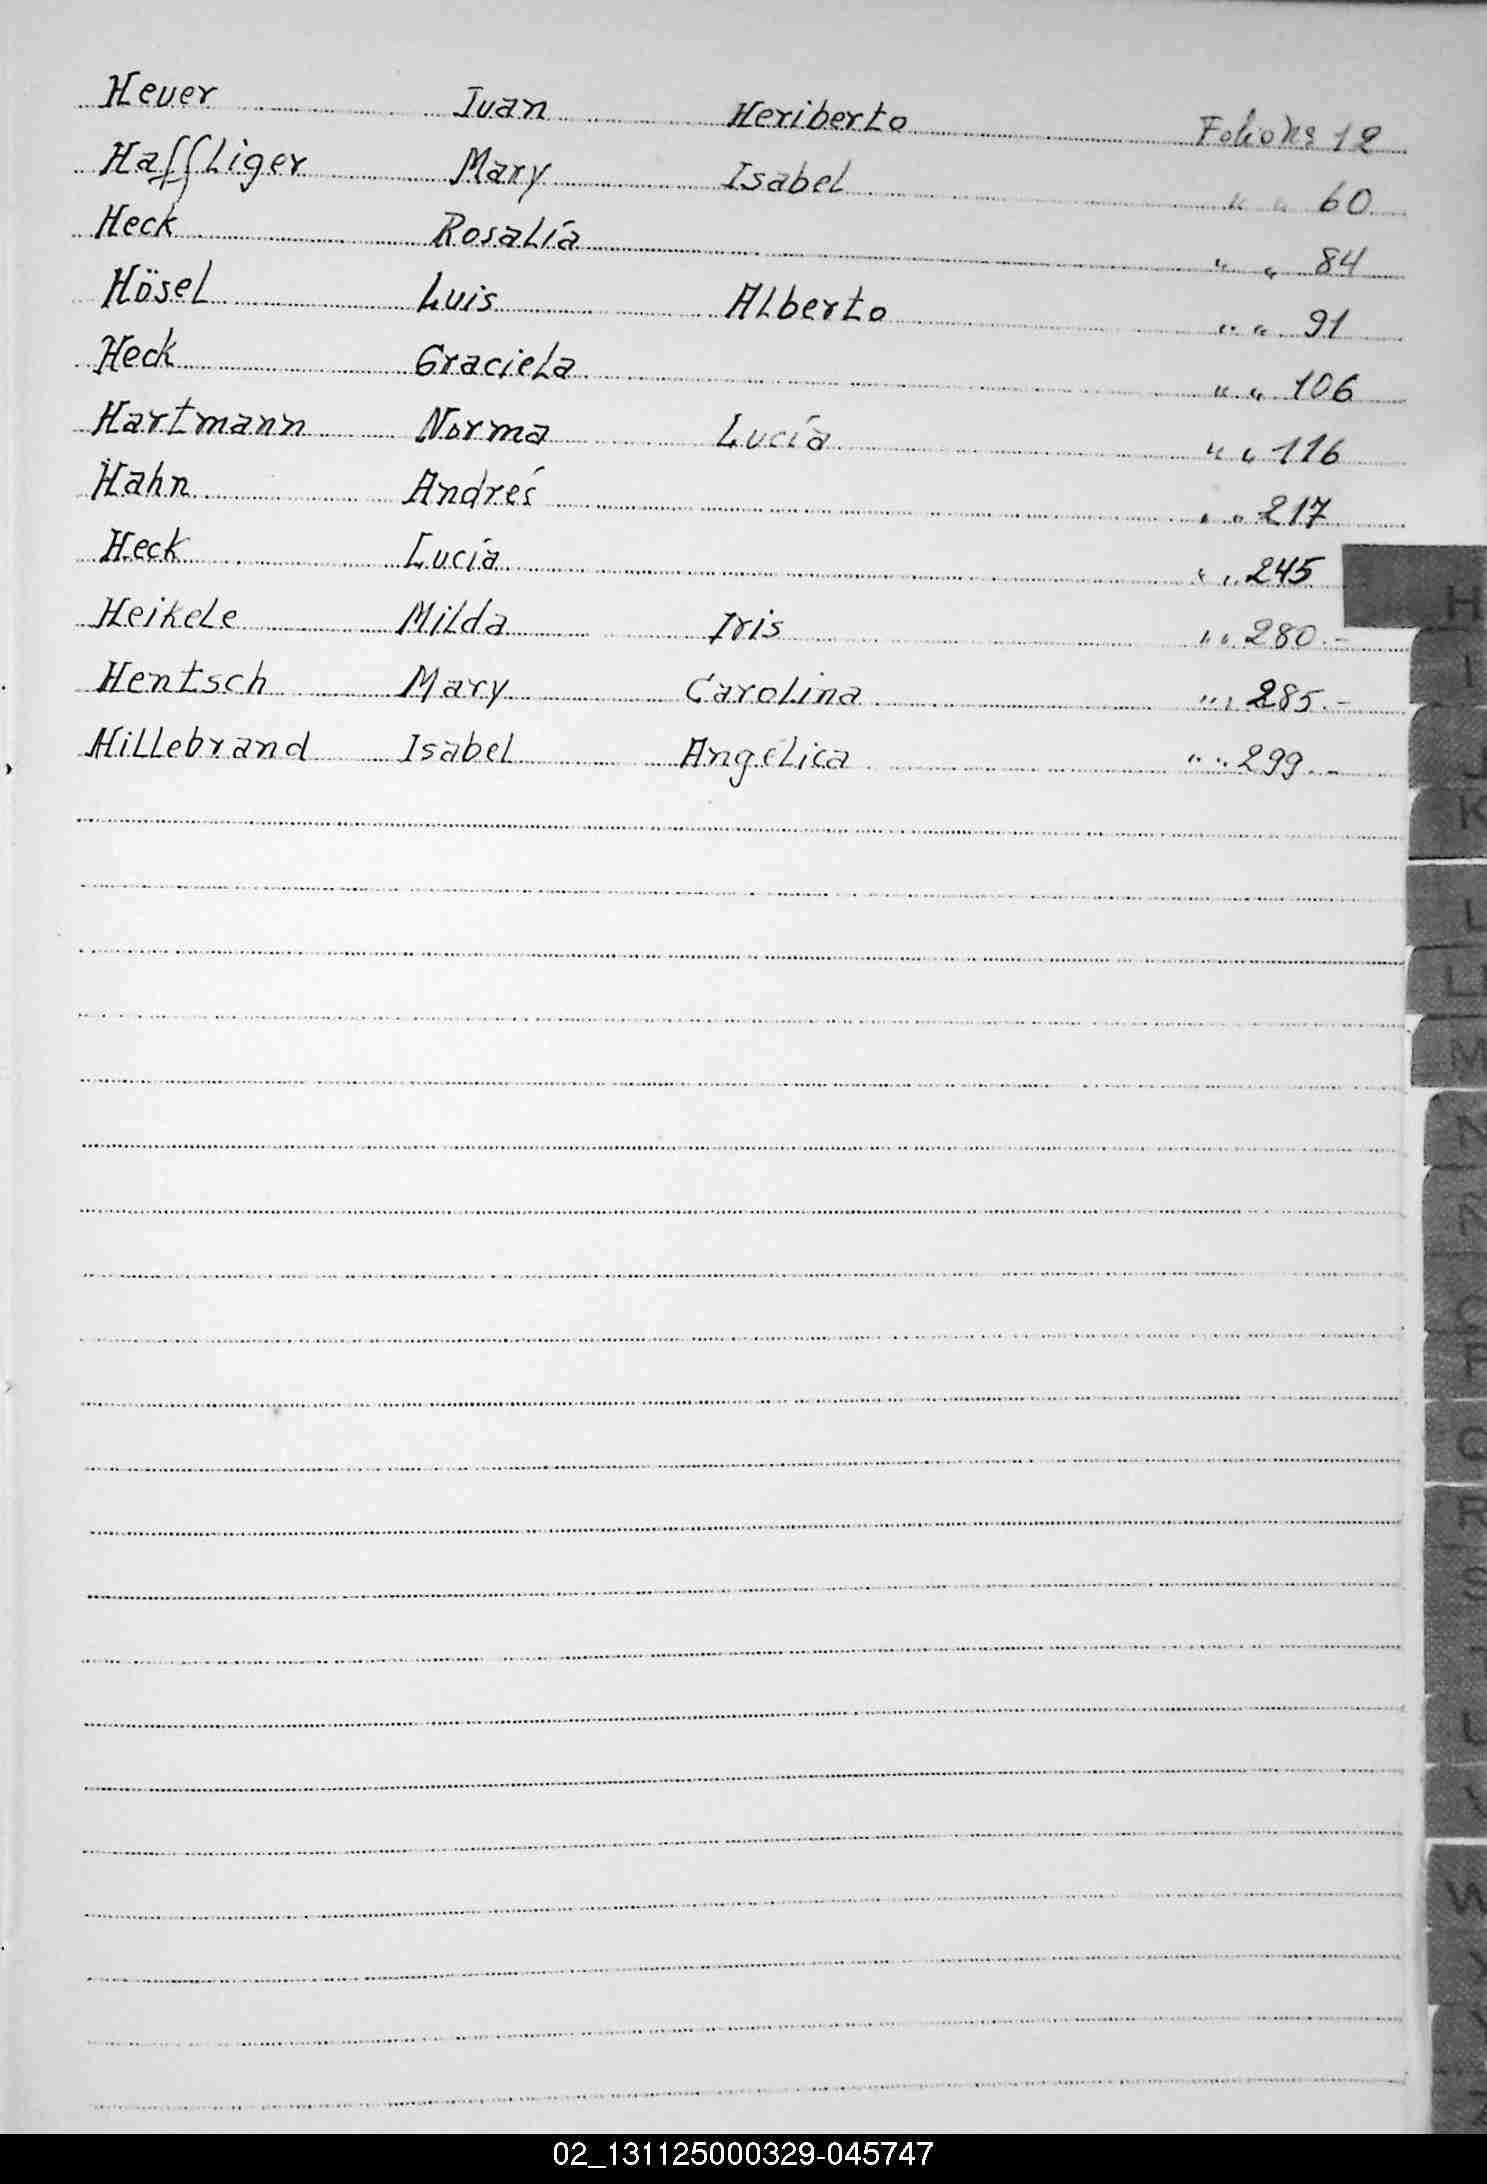 Heuer Juan Heriberto Folio Nº 12
Haffliger Mary Isabel " " 60
Heck Rosalía " " 84
Hösel Luis Alberto " " 91
Heck Graciela " " 106
Hartmann Norma Lucía " " 116
Hahn Andrés " " 217
Heck Lucía " " 245
Heikele Milda Iris " " 280.-
Hentsch Mary Carolina " " 285.-
Hillebrand Isabel Angélica " " 299.-
H
I
J
K
L
LL
M
N
Ñ
O
P
Q
R
S
T
U
V
W
X
Y
Z
02_131125000329-045747